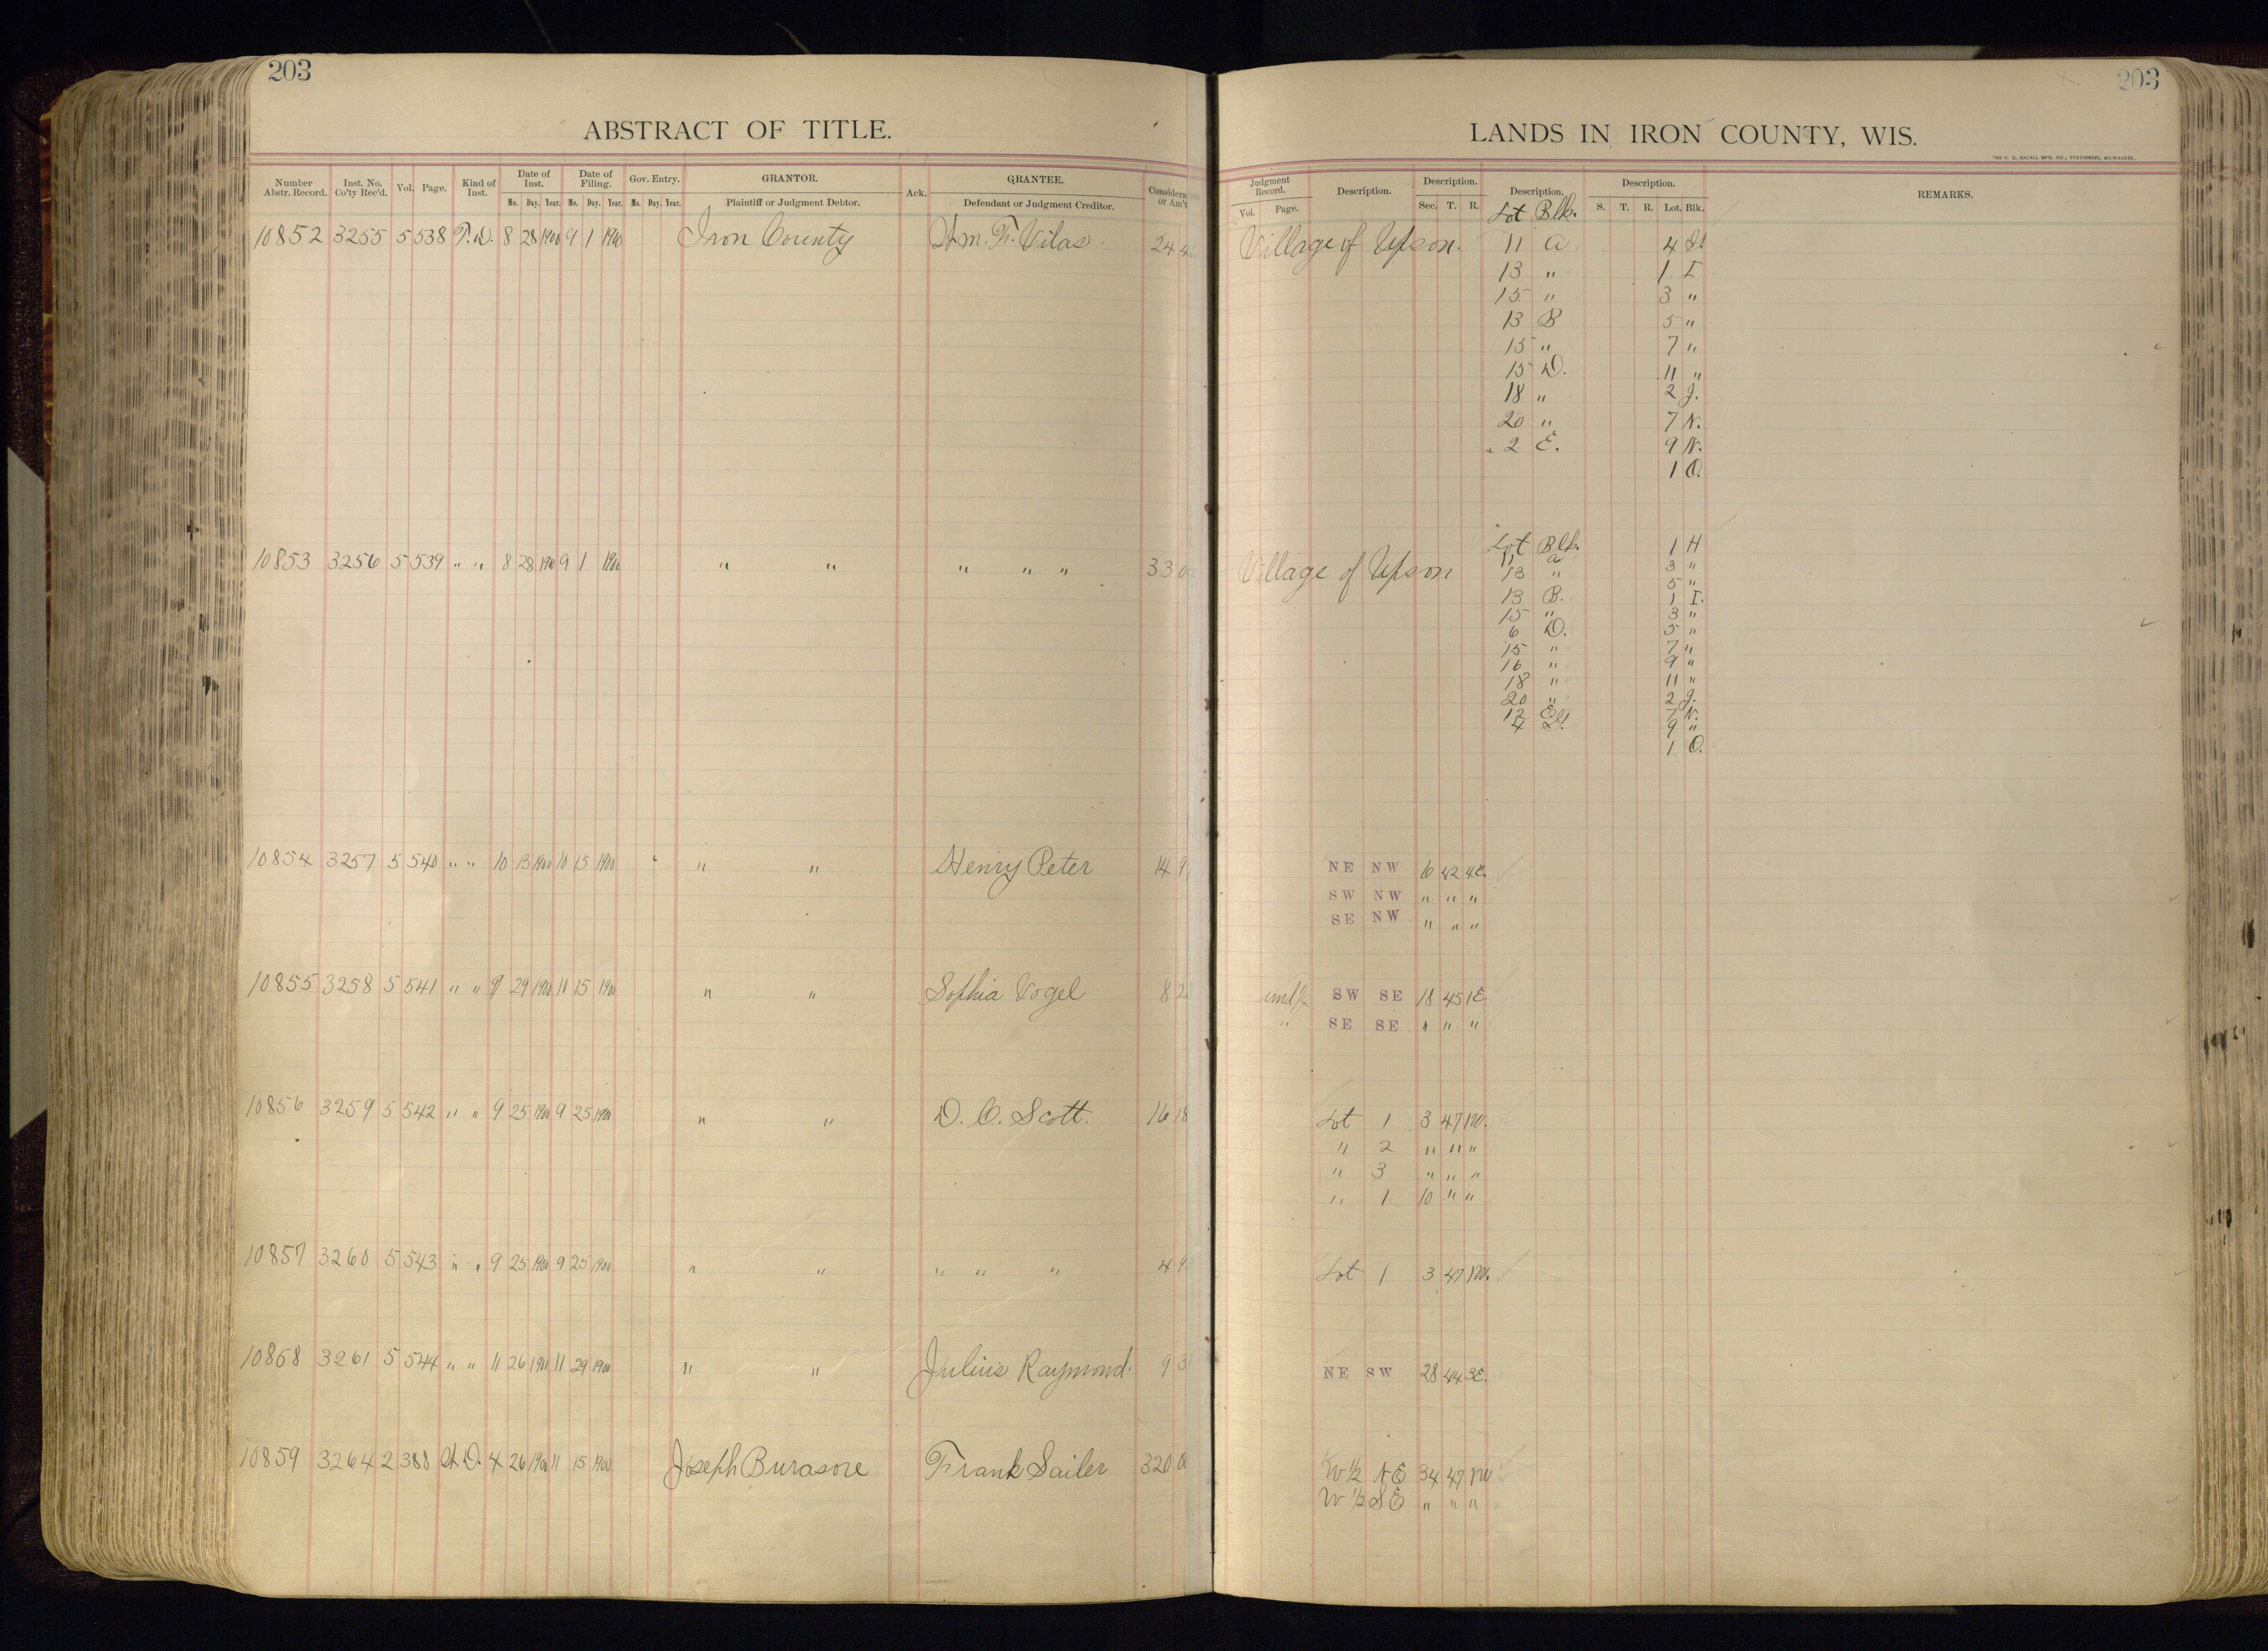 203
203
ABSTRACT OF TITLE.
LANDS IN IRON COUNTY, WIS.
THE H. G. RAZALL MFG. CO., STATIONERS, MILWAUKEE.
Number Abstr. Record. Inst. No. Co'ty Rec'd. Vol. Page. Kind of Inst. Date of Inst. Mo. Day. Year. Date of Filing. Mo. Day. Year. Gov. Entry. Mo. Day. Year. GRANTOR. Plaintiff or Judgment Debtor. Ack. GRANTEE. Defendant or Judgment Creditor. Considera or Am't
Judgment Record. Vol. Page. Description. Description. Sec. T. R. Description. Lot Blk. Description. S. T. R. Lot. Blk. REMARKS.
10852 3255 5 538 T.D. 8 28 1900 9 1 1900 Iron County Wm. F. Vilas. 24 4 Village of Upson. 11 A 4 H
13 " 1 I
15 " 3 "
13 B 5 "
15 " 7 "
15 D. 11 "
18 " 2 J.
20 " 7 N.
2 E. 9 N.
1 O.
Lot Blk. 1 H
10853 3256 5 539 " " 8 28 1900 9 1 1900 " " " " " 33 Village of Upson 11 A 3 "
13 " 5 "
13 B. 1 I.
15 " 3 "
6 D. 5 "
15 " 7 "
16 " 9 "
18 " 11 "
20 " 2 J.
12 E 7 N.
4 9 "
1 O.
10854 3257 5 540 " " 10 13 1900 10 15 1900 " " Henry Peter 14 9 NE NW 6 42 4E.
SW NW " " "
SE NW " " "
10855 3258 5 541 " " 9 29 1900 11 15 1900 " " Sophia Vogel 8 2 und 1/2 SW SE 18 45 1E.
" SE SE " " "
10856 3259 5 542 " " 9 25 1900 9 25 1900 " " D. C. Scott. 16 18 Lot 1 3 47 1W.
" 2 " " "
" 3 " " "
" 1 10 " "
10857 3260 5 543 " " 9 25 1900 9 25 1900 " " " " " 4 9 Lot 1 3 47 1W.
10858 3261 5 544 " " 11 26 1900 11 29 1900 " " Julius Raymond. 9 3 NE SW 28 44 3E.
10859 3264 2 388 4 26 1900 11 15 1900 Joseph Burasore Frank Sailer 320 0 W 1/2 NE 34 47 1W
W 1/2 SE " " "